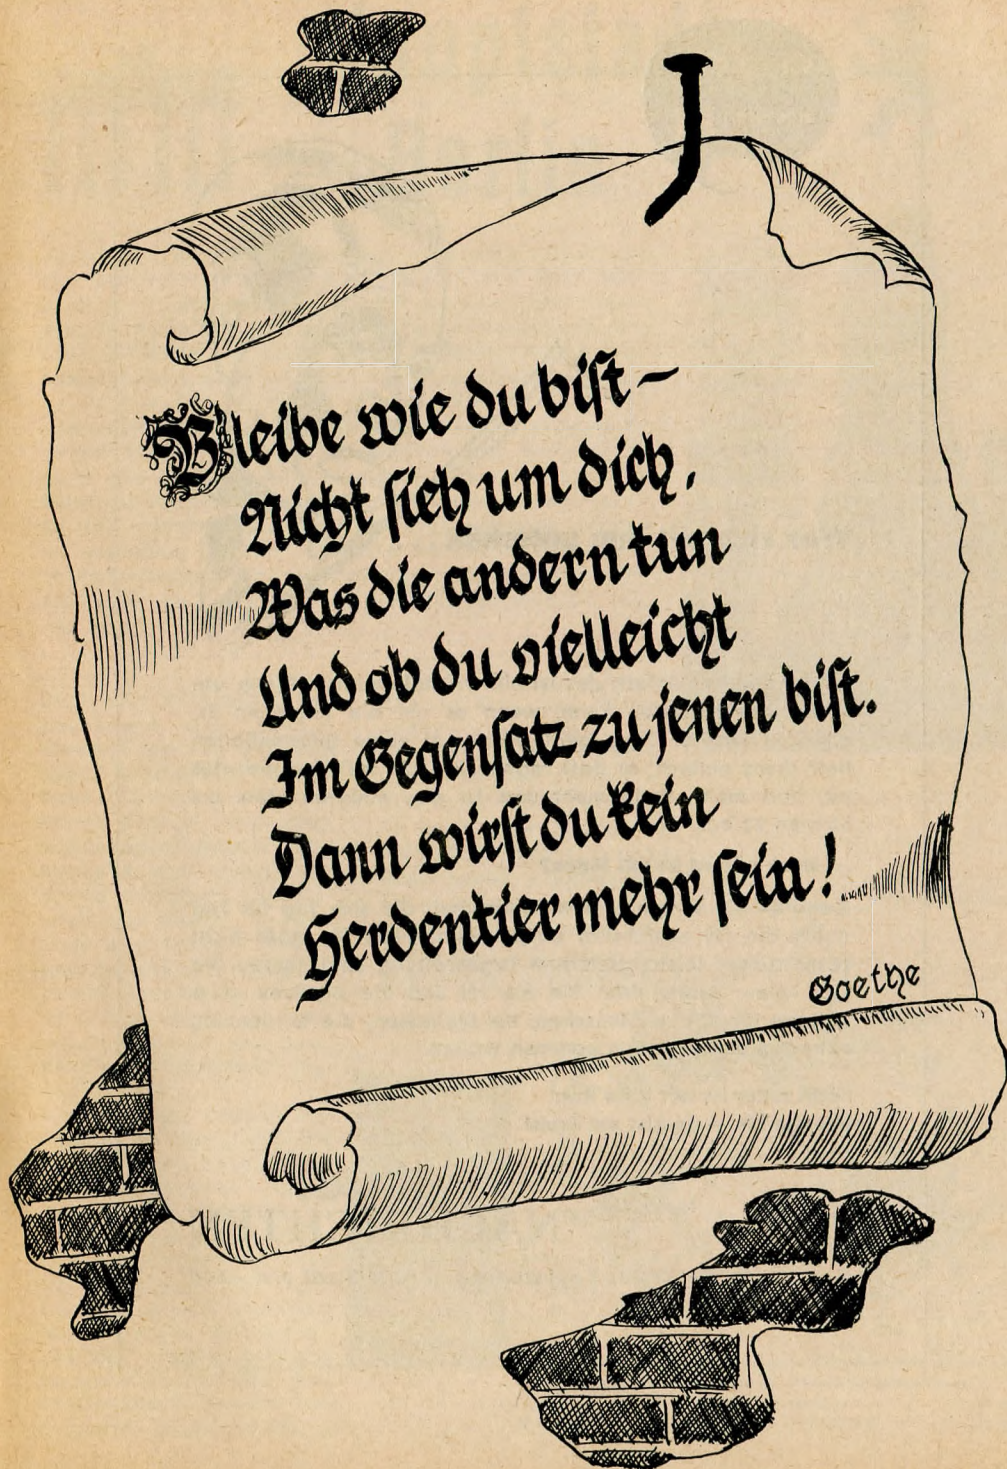 Bleibe wie du bist –
Nicht sieh um dich,
Was die andern tun
Und ob du vielleicht
Im Gegensatz zu jenen bist.
Dann wirst du kein
Herdentier mehr sein!
Goethe